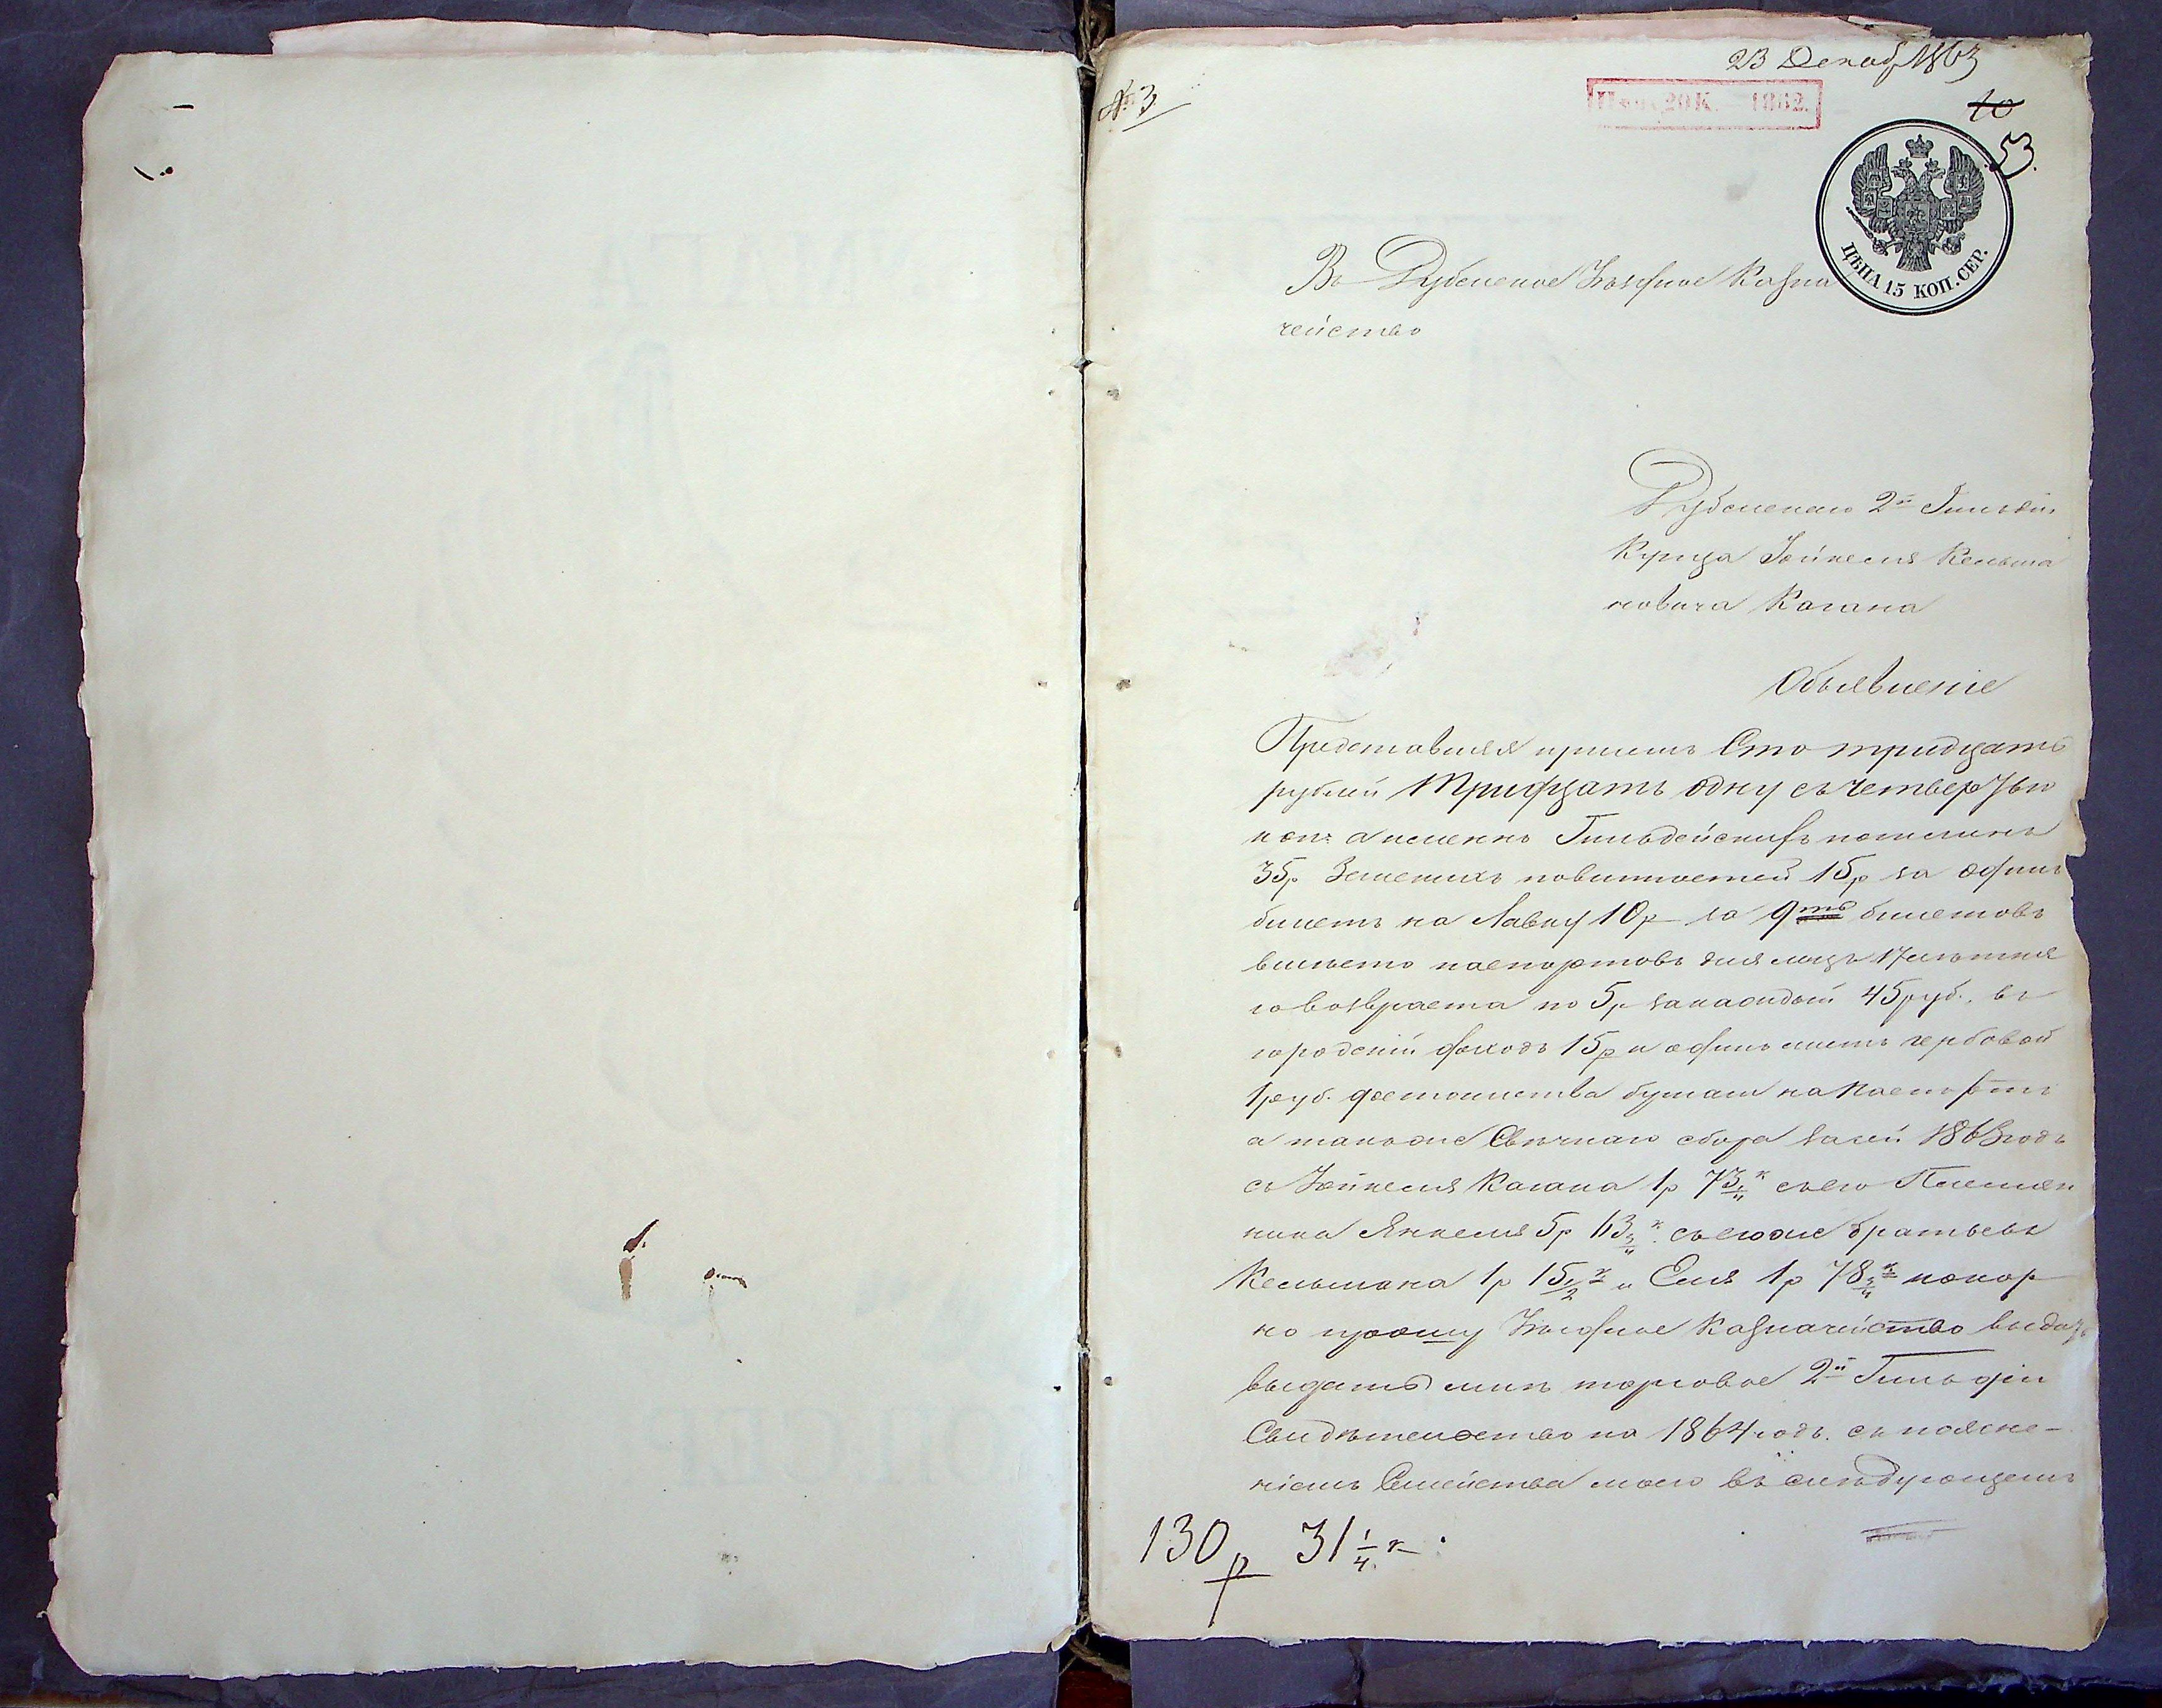 23 Декаб 1863
№ 3
Цѣн. 20 К. 1862.
10
53.
ЦѢНА 15 КОП. СЕР.
Въ Дубенское Уѣздное Казна
чейство
Дубенскаго 2й Гильдіи
Купца Хайкеля Кельма
новича Кагана
Объявленіе
Представляя присемъ Сто тридцать
рублей тридцать одну съ четвертью
коп: а именно Гильдейскихъ пошлинъ
35р Земскихъ повинностей 15р за одинъ
билетъ на Лавку 10р за 9ть билетовъ
вмѣсто паспортовъ для лицъ 17лѣтня
го возраста по 5р закаждый 45руб., въ
городскій доходъ 15р и одинъ листъ гербовой
1руб. достоинства бумаги на Паспортъ
а также Свѣчнаго сбора засей 1863годъ
съ Хайкеля Кагана 1р 73 1/4 к съего Племян
ника Янкеля 5р 63 3/4 к. съегоже братьевъ
Кельмана 1р 15 1/2 к и Еля 1р 78 3/4 к покор
но прошу Уѣздное Казначейство выдать
выдать мнѣ торговое 2й Гильдіи
Свидѣтельство на 1864годъ. съ поясне-
ніемъ Семейства моего въ слѣдующемъ
130 р 31 1/4 к.